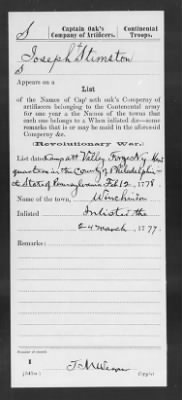 S | Captain Oak's Company of Artificers. | Continental Troops.
Joseph Stimston
Appears on a
List
of the Names of Cap't seth oak's Comperty of
artificers belonging to the Contenental army
for one year a the Names of the towns that
each one belongs to a When inlisted &c—some
remarks that is or may be maid in the aforesaid
Comperny &c.
(Revolutionary War.)
List dated Camp att Valley Forge
quarters in the County of Philadelphi-
State of Pennsylvania Feb 12, 1778.
Name of the town, Winchindon
Inlisted Inlisted the
24 march, 1777.
Remarks:
Number of record:
1
(545a) Copyist.